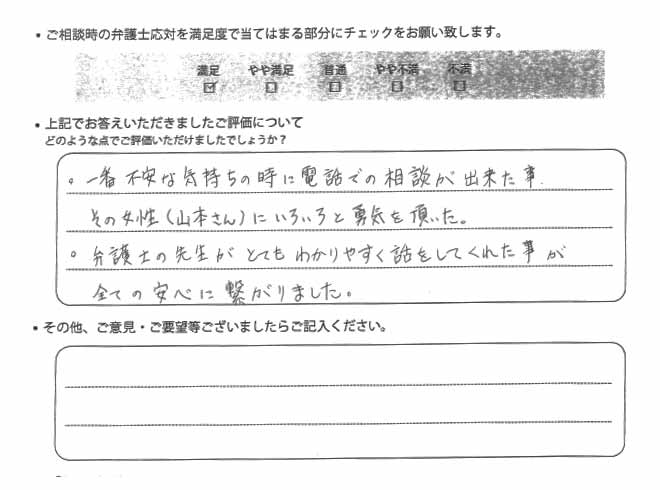 ・ご相談時の弁護士応対を満足度で当てはまる部分にチェックをお願い致します。
満足 やや満足 普通 やや不満 不満
☑ □ □ □ □
・上記でお答えいただきましたご評価について
どのような点でご評価いただけましたでしょうか?
。一番不安な気持ちの時に電話での相談が出来た事.
その女性(山本さん)にいろいろと勇気を頂いた。
。弁護士の先生がとてもわかりやすく話をしてくれた事が
全ての安心に繋がりました。
・その他、ご意見・ご要望等ございましたらご記入ください。